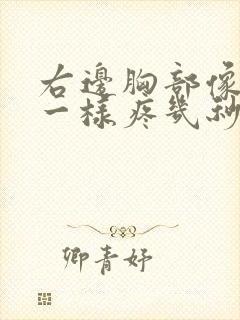 右邊胸部像
一樣疼幾秒
卿青妤